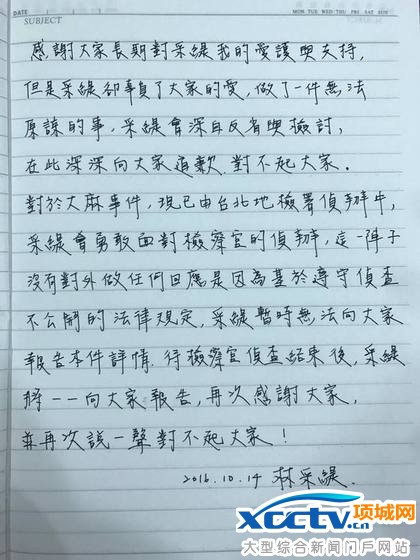 DATE
SUBJECT
MON. TUE. WED. THU. FRI. SAT. SUN.
感謝大家長期對采緹我的愛護與支持,
但是采緹卻辜負了大家的愛,做了一件無法
原諒的事,采緹會深自反省與檢討,
在此深深向大家道歉.對不起大家.
對於大麻事件,現已由台北地檢署偵辦中,
采緹會勇敢面對檢察官的偵辦,這一陣子
沒有對外做任何回應是因為基於遵守偵查
不公開的法律規定,采緹暫時無法向大家
報告本件詳情.待檢察官偵查結束後,采緹
將一一向大家報告,再次感謝大家,
並再次說一聲對不起大家!
2016.10.14 林采緹.
项城网
xcctv.cn
大型综合新闻门戶网站